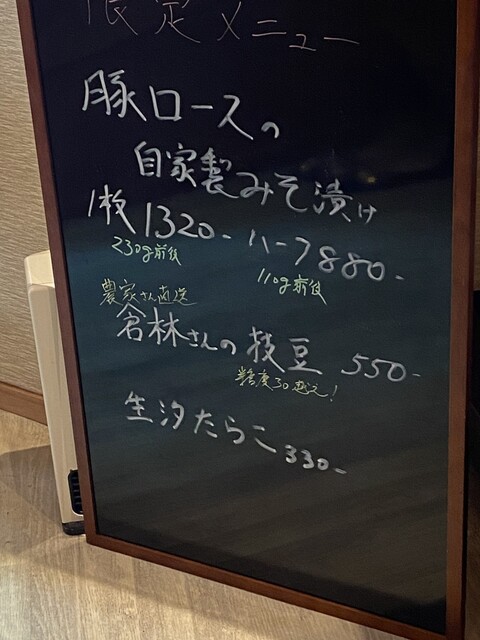 限定メニュー
豚ロースの
自家製みそ漬け
1枚 1320- ハーフ 880-
230g前後 110g前後
農家さん直送
倉林さんの枝豆 550-
糖度30超え!
生汐たらこ 330-